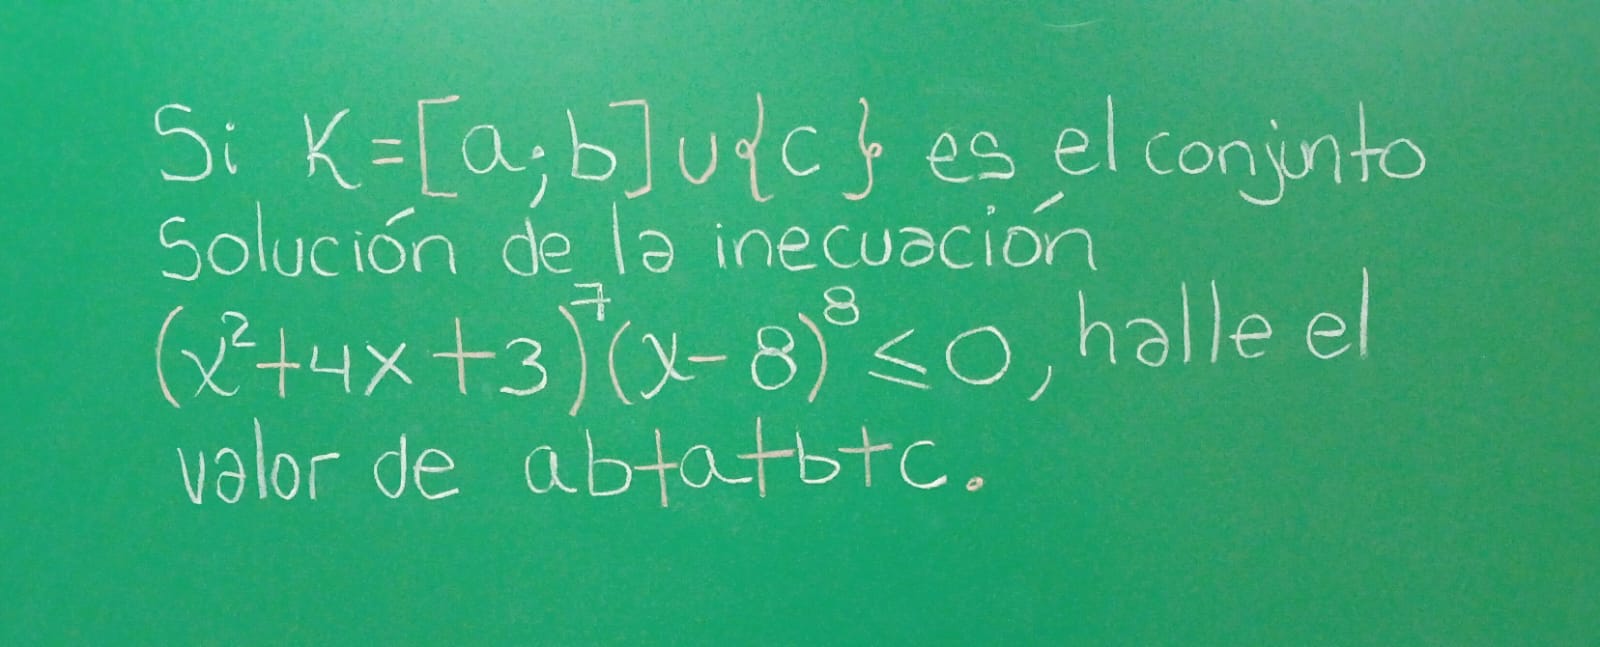 Si K=[a;b]∪{c} es el conjunto
Solución de la inecuación
(x²+4x+3)⁷(x-8)⁸≤0, halle el
valor de ab+a+b+c.